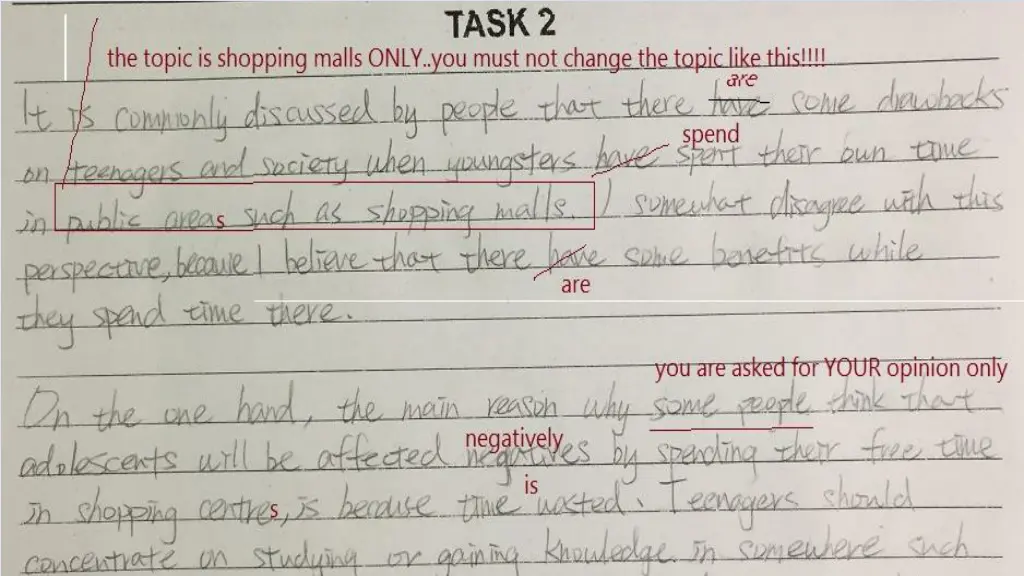 TASK 2
the topic is shopping malls ONLY..you must not change the topic like this!!!!
are
It is commonly discussed by people that there have some drawbacks
spend
on teenagers and society when youngsters have spent their own time
in public areas such as shopping malls. I somewhat disagree with this
perspective, because I believe that there have some benefits while
are
they spend time there.
you are asked for YOUR opinion only
On the one hand, the main reason why some people think that
negatively
adolescents will be affected negatives by spending their free time
is
in shopping centres, is because time wasted. Teenagers should
concentrate on studying or gaining knowledge in somewhere such